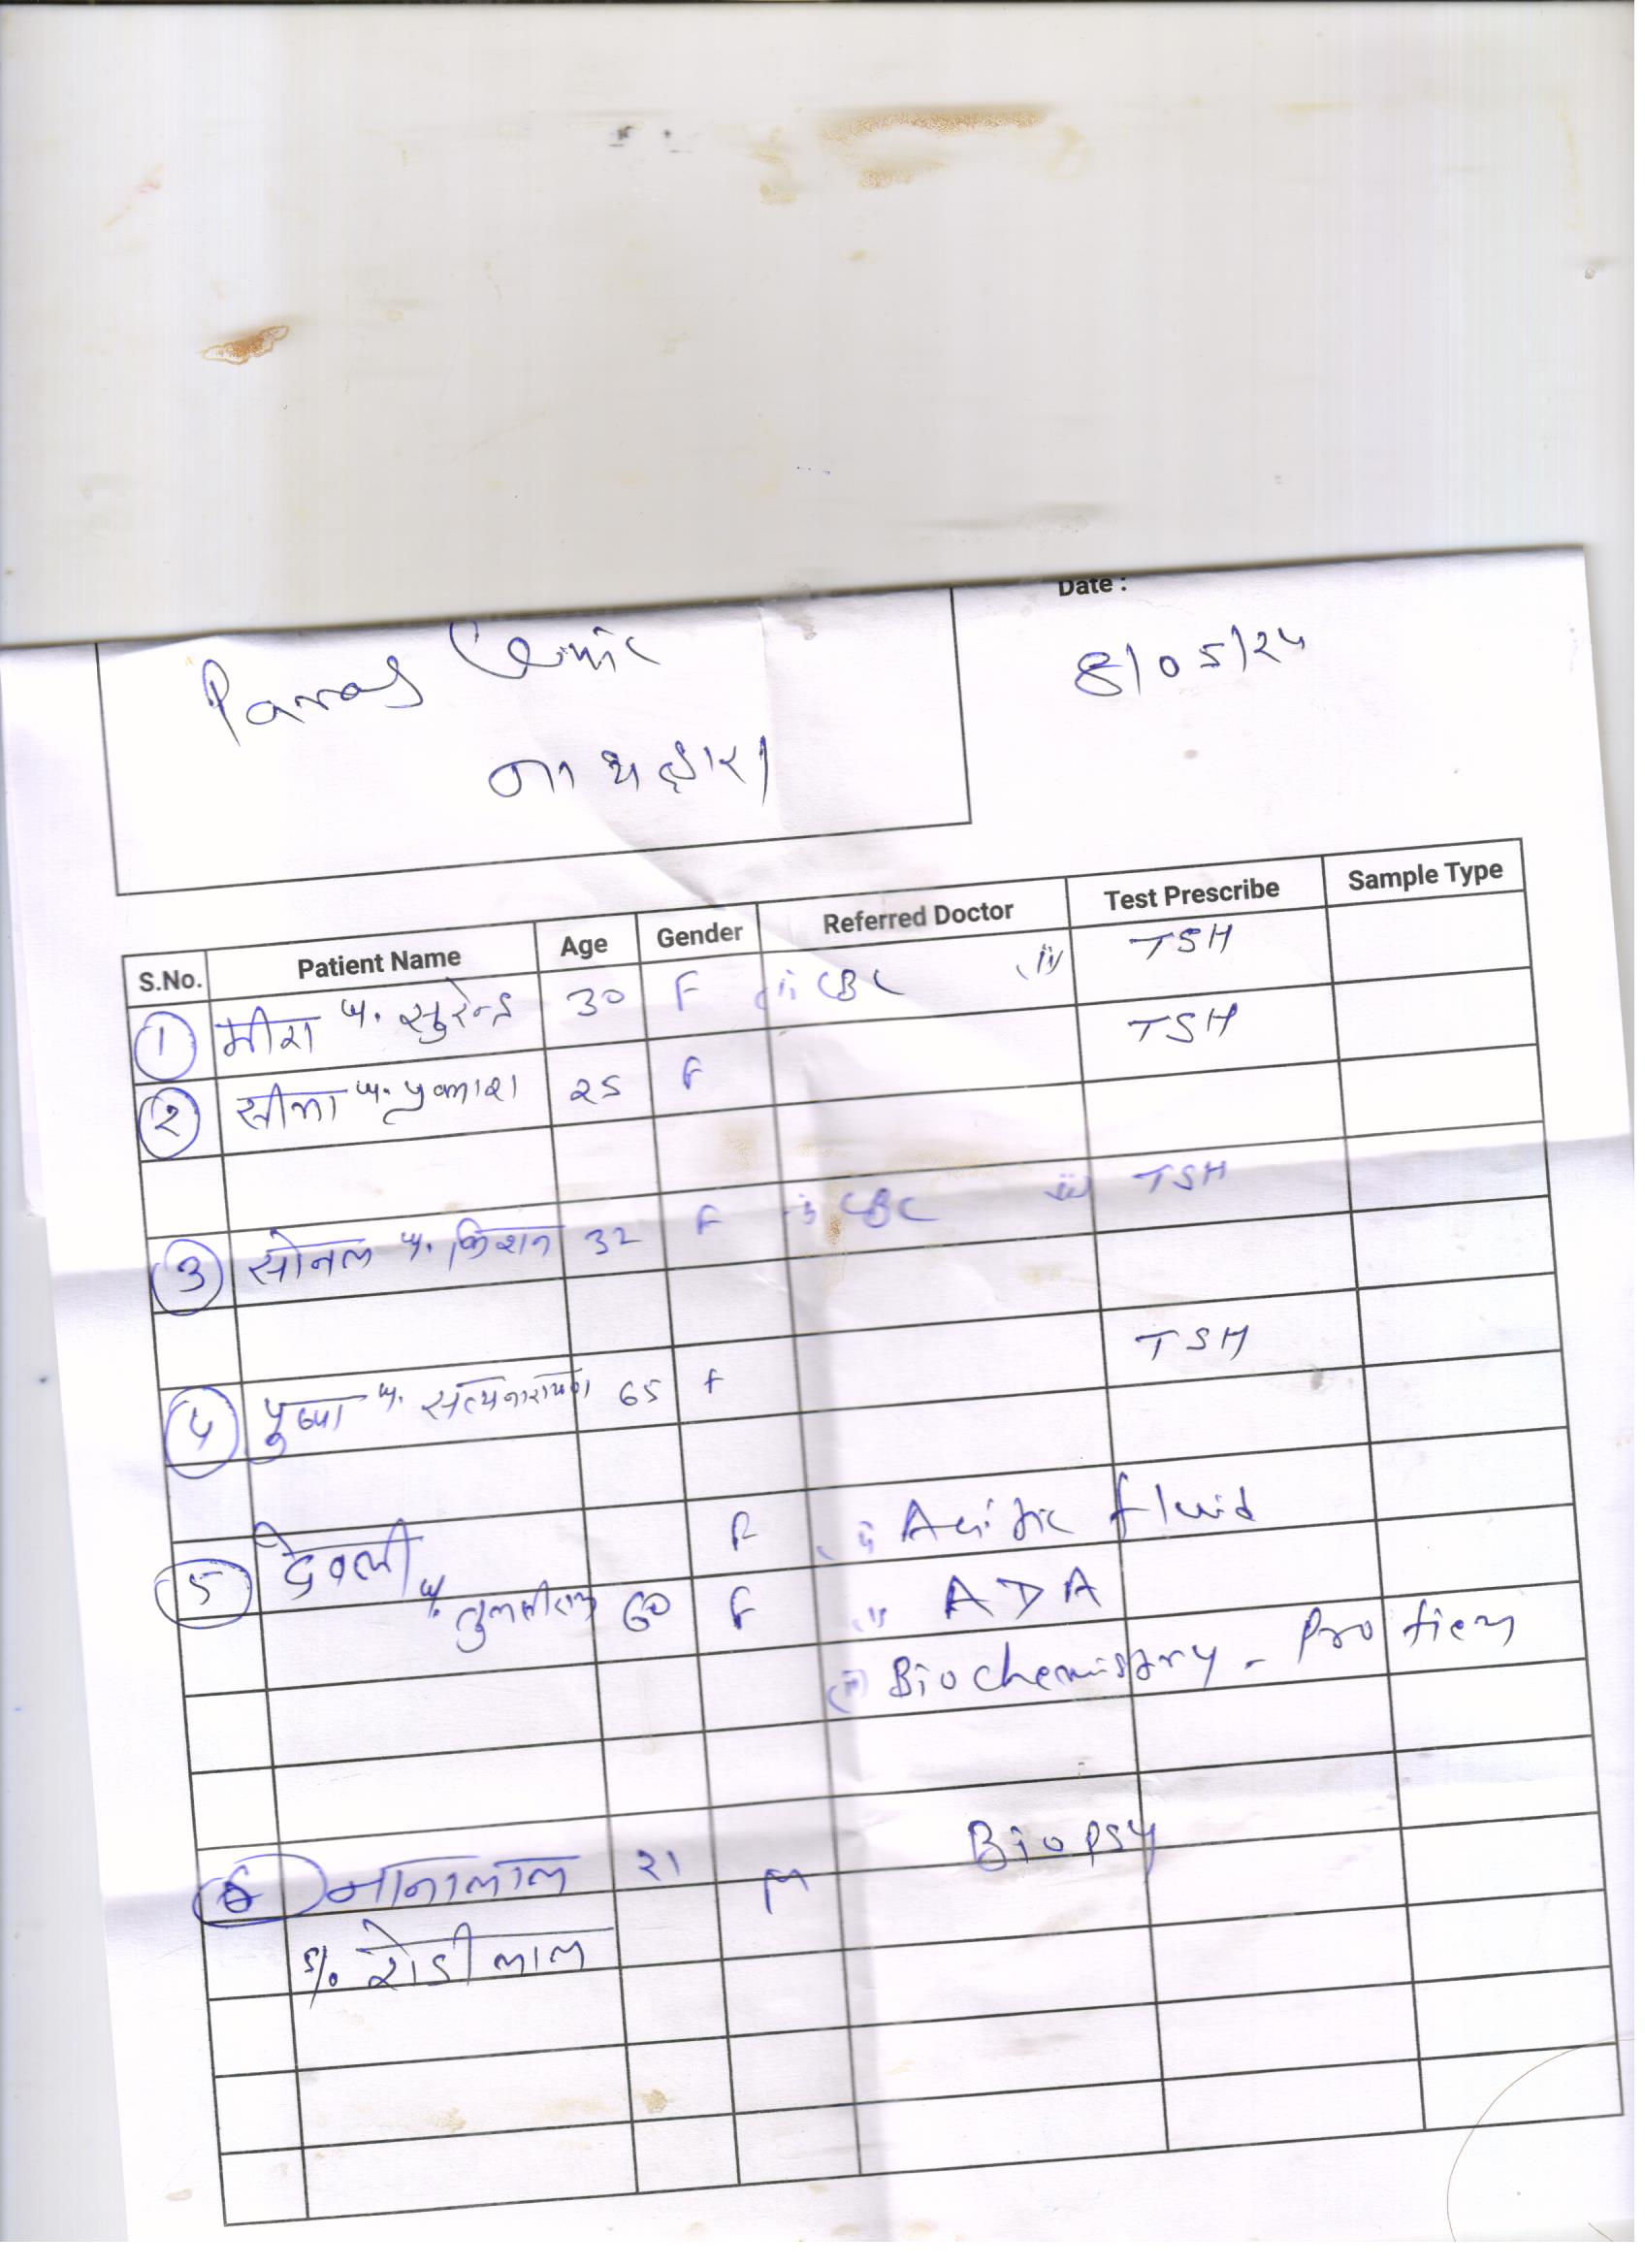 Date :
Paras Clinic
8/05/24
नाथद्वारा
S.No. Patient Name Age Gender Referred Doctor Test Prescribe Sample Type
1 मीरा w. सुरेन्द्र 30 F (i) CBC (ii) TSH
2 सीमा w. प्रकाश 25 F TSH
3 सोनल w. किशन 32 F (i) CBC (ii) TSH
4 पुष्पा w. सत्यनारायण 65 F TSH
5 देवली F (i) Acitic fluid
w. तुलसीराम 60 F (ii) ADA
Biochemistry - Protien
6 नानालाल 21 M Biopsy
S/o. रोडीलाल